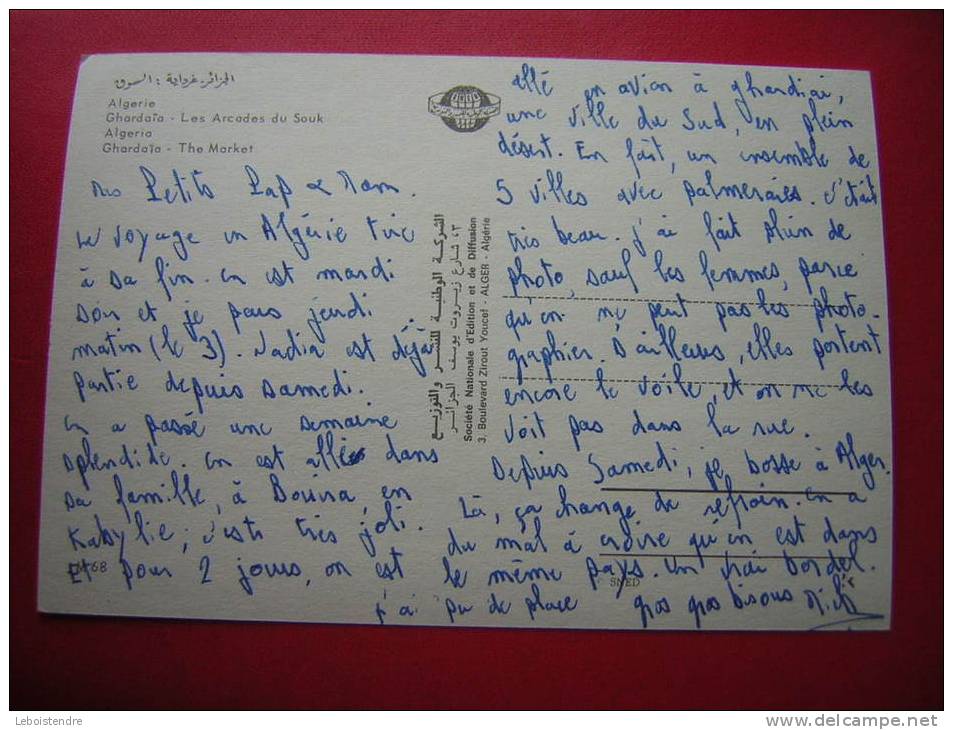 الجزائر - غرداية : السوق
Algerie
Ghardaïa - Les Arcades du Souk
Algeria
Ghardaïa - The Market
Mes Petits Pap & Mam.
Le voyage en Algérie tire
à sa fin. On est mardi
soir et je pars jeudi
matin (le 3). Nadia est déjà
partie depuis samedi.
On a passé une semaine
splendide. On est allés dans
sa famille, à Bouira en
Kabylie, c'est très joli.
Et pour 2 jours, on est
68
الشركة الوطنية للنشر والتوزيع
٣، شارع زيروت يوسف الجزائر
Société Nationale d'Edition et de Diffusion
3, Boulevard Zirout Youcef - ALGER - Algérie
allé en avion à ghardiai,
une ville du Sud, en plein
désert. En fait, un ensemble de
5 villes avec palmeraies. C'était
très beau. J'ai fait plein de
photo, sauf les femmes, parce
qu'on ne peut pas les photo-
graphier. D'ailleurs, elles portent
encore le voile, et on ne les
voit pas dans la rue.
Depuis Samedi, je bosse à Alger.
Là, ça change de refrain. On a
du mal à croire qu'on est dans
le même pays. Un vrai bordel.
SNED
j'ai pu de place gros gros bisous
Leboistendre
www.delcampe.net